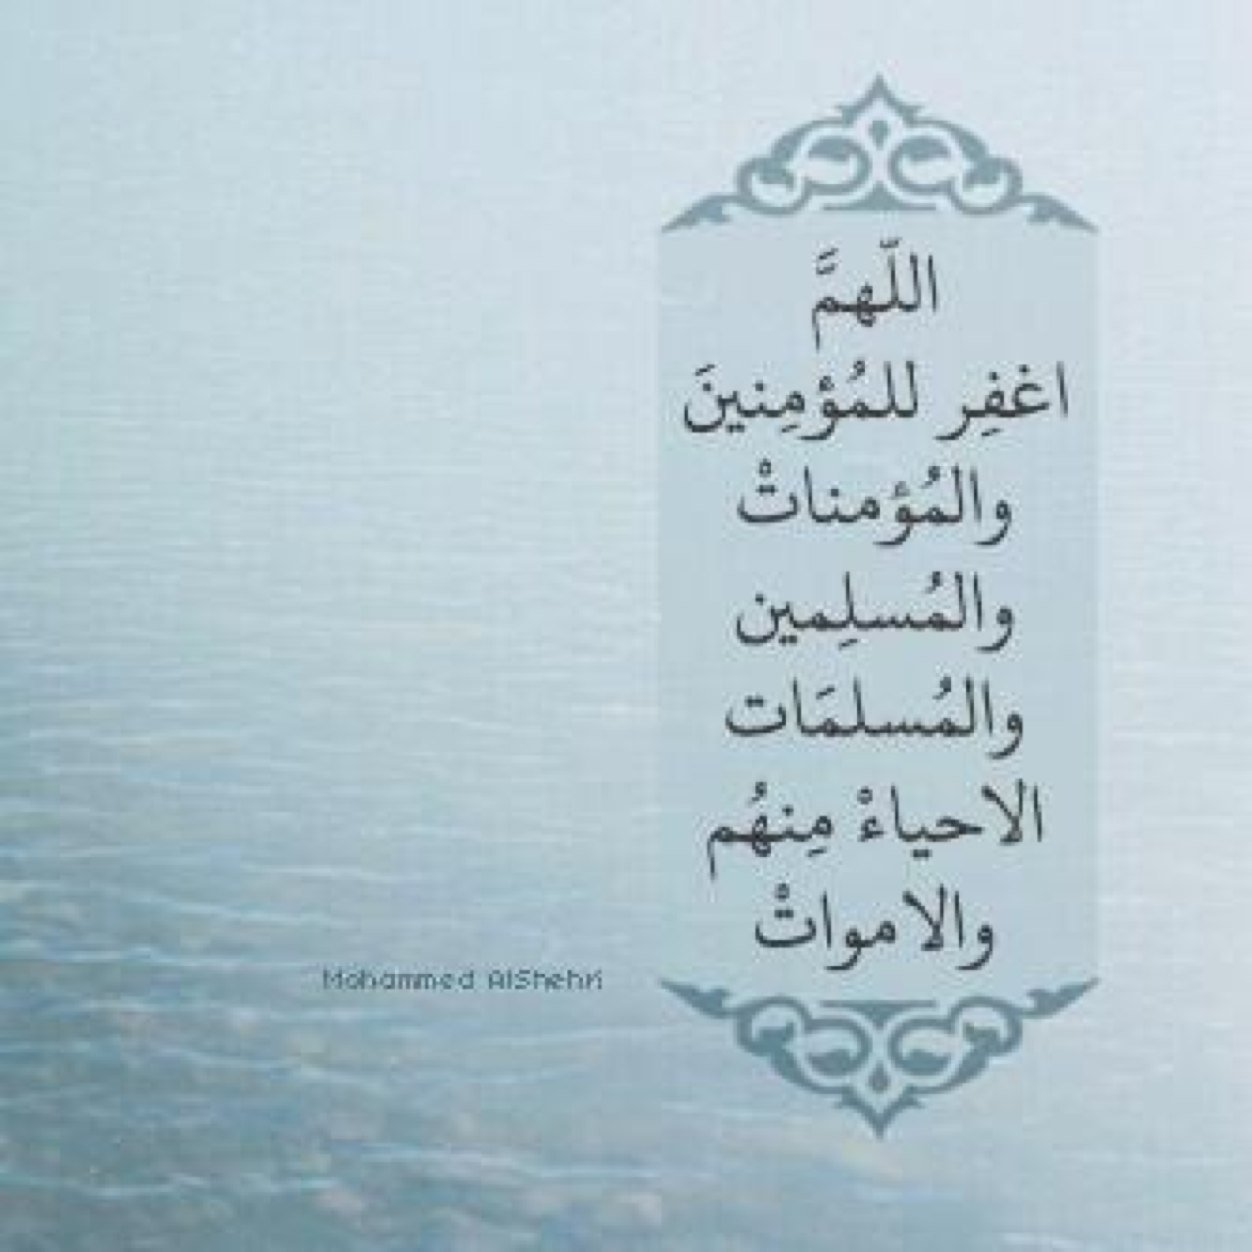 اللّهمَّ
اغفِر للمُؤمِنينَ
والمُؤمناتْ
والمُسلِمين
والمُسلمَات
الاحياءْ مِنهُم
والامواتْ
Mohammed AlShehri